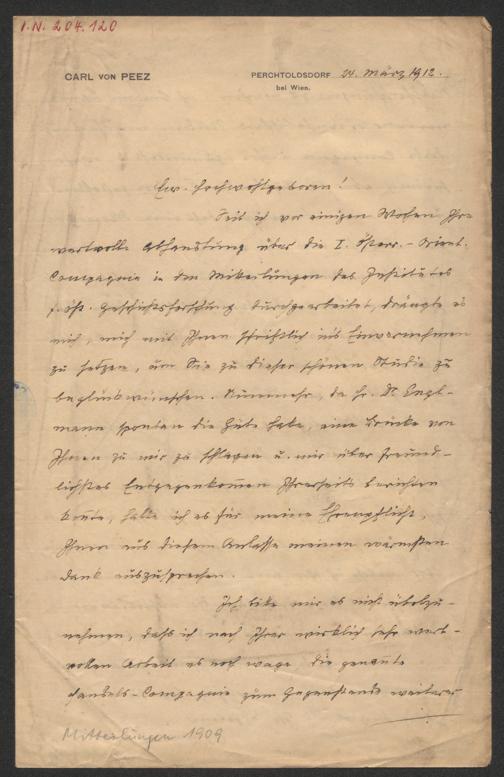 I.N. 204.120
CARL VON PEEZ
PERCHTOLDSDORF 24. März 1912.
bei Wien.
Euer Hochwohlgeboren!
Seit ich vor einigen Wochen Ihre
wertvolle Abhandlung über die I. Österr.-Orient.
Compagnie in den Mitteilungen des Institutes
f. öst. Geschichtsforschung durchgearbeitet, drängte es
mich, mich mit Ihnen schriftlich ins Einvernehmen
zu setzen, um Sie zu dieser schönen Studie zu
beglückwünschen. Nunmehr, da Hr. Dr. Engl-
mann spontan die Güte hatte, eine Brücke von
Ihnen zu mir zu schlagen u. mir über freund-
lichstes Entgegenkom̅en Ihrerseits berichten
kon̅te, halte ich es für meine Ehrenpflicht,
Ihnen aus diesem Anlasse meinen wärmsten
Dank auszusprechen.
Ich bitte mir es nicht übelzu-
nehmen, daß ich nach Ihrer wirklich sehr wert-
vollen Arbeit es noch wage, die genan̅te
Handels-Compagnie zum Gegenstande weiterer
Mitteilungen 1909